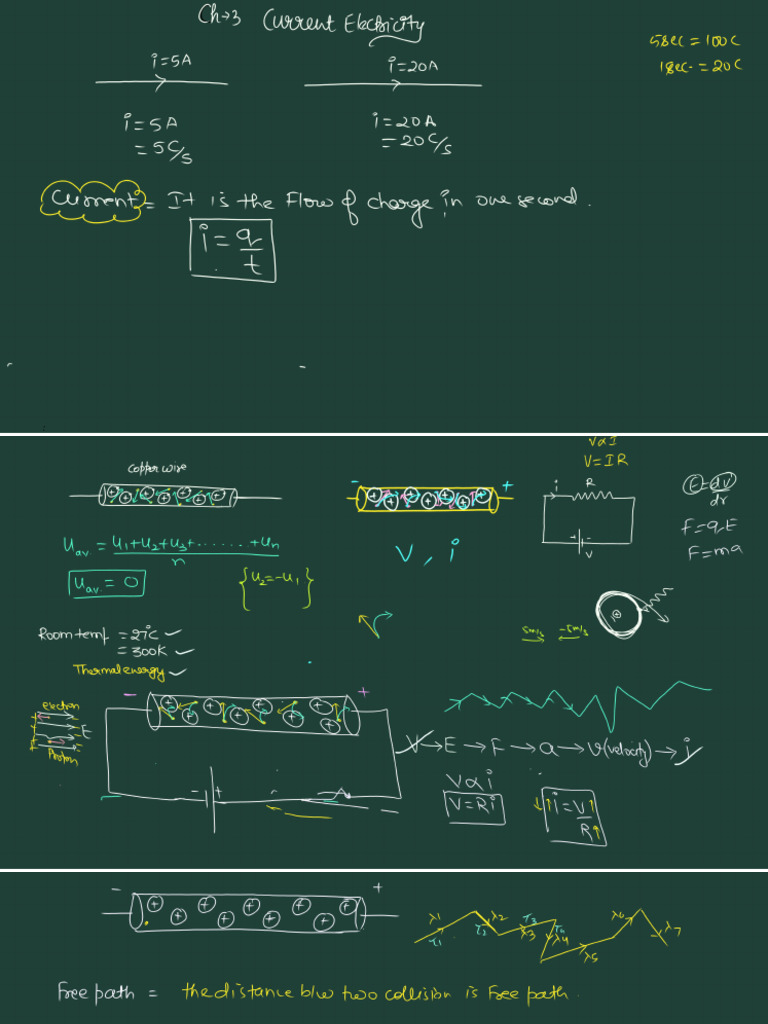 Ch→3 Current Electricity
5sec = 100C
1sec. = 20C
i=5A
i=20A
i=5A
= 5C/s
i=20A
= 20C/s
Current = It is the Flow of charge in one second.
i = q/t
copper wire
- +
V∝I
V=IR
i R
V
E=dV/dr
F=qE
F=ma
Uav = U1+U2+U3+.......+Un/n
Uav. = 0
{U2=-U1}
V, i
5m/s -5m/s
Room temp = 27°C ✓
= 300K ✓
Thermal energy ✓
- +
electron
E
Proton
- +
V→E→F→a→v(velocity)→i
V∝i
V=Ri
↓↑i=V↑/R↑
- +
λ1 λ2 λ3 λ4 λ5 λ6 λ7
τ1 τ2 τ3 τ4
Free path = the distance b/w two collision is Free path.